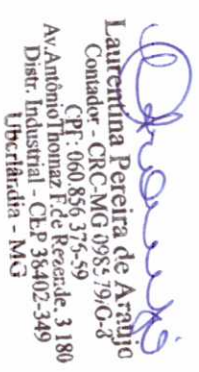 Laurentina Pereira de Araujo
Contador - CRC-MG 098579/O-3
CPF: 060 856 376-59
Av. Antônio Thomaz F. de Rezende, 3 180
Distr. Industrial - CEP 38402-349
Uberlândia - MG